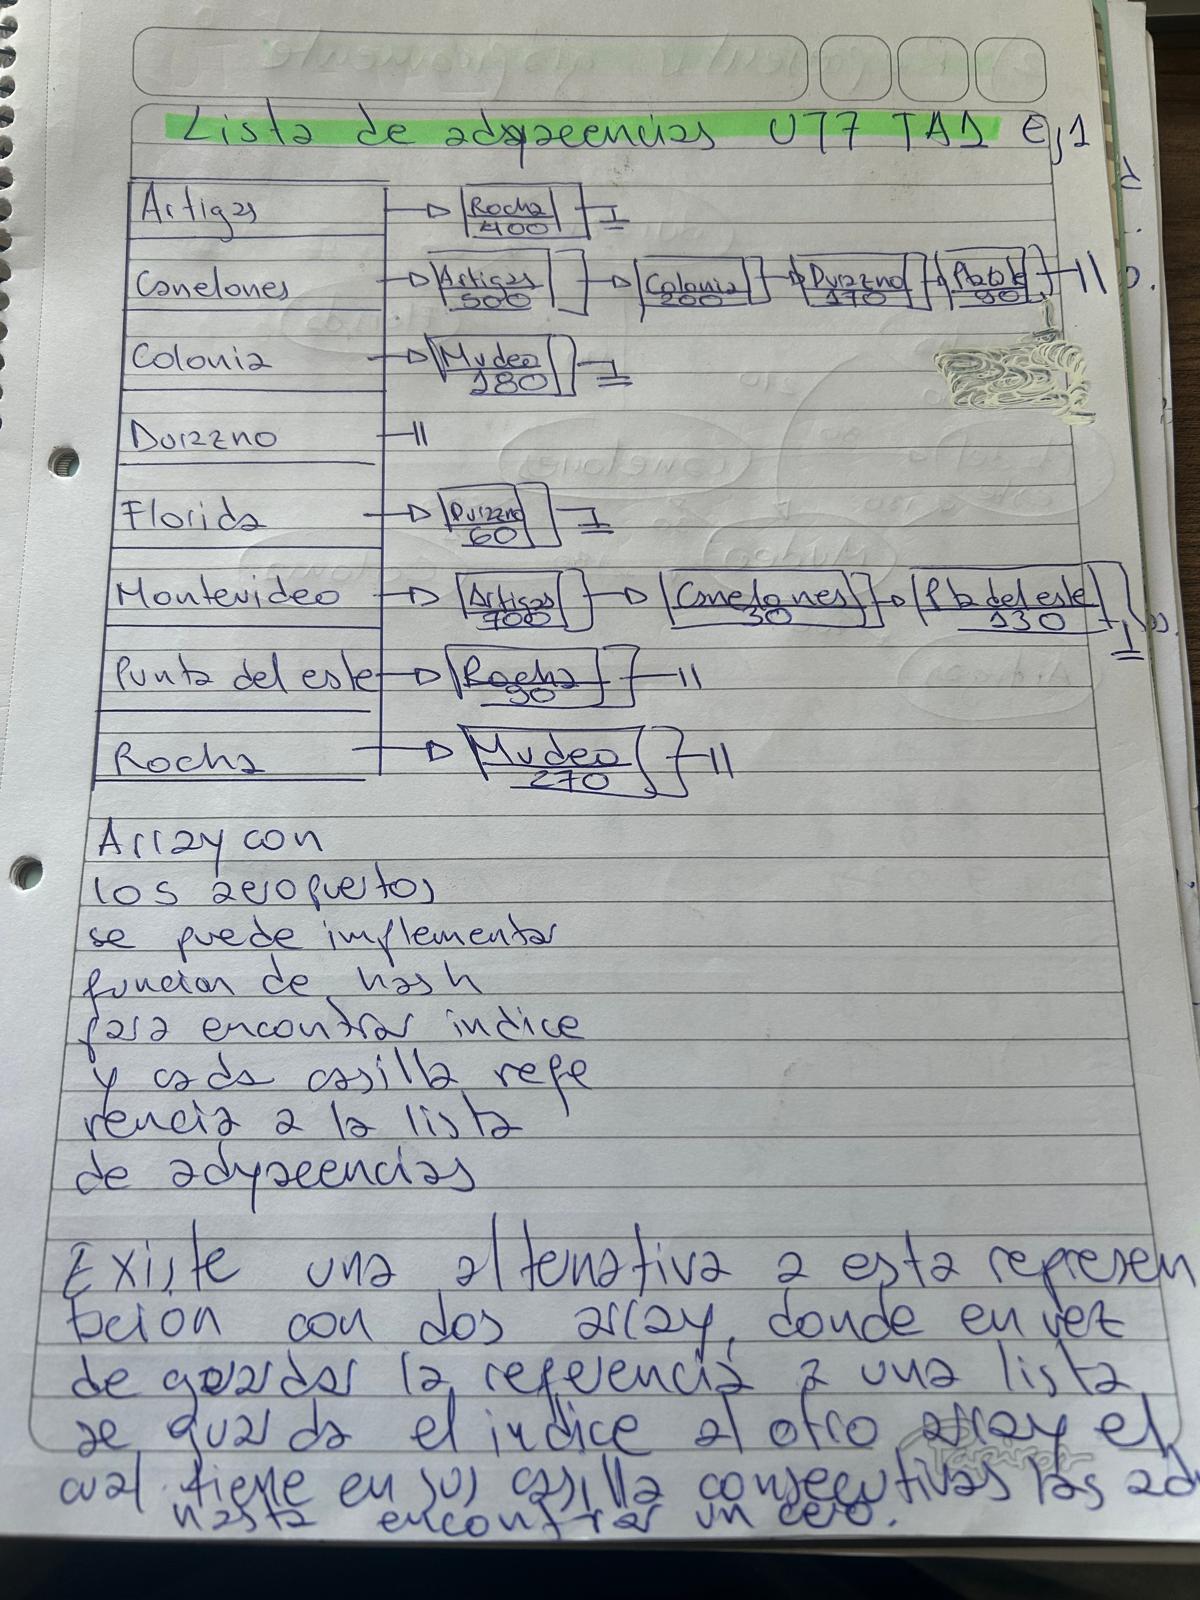 Lista de adyacencias UT7 TA1 Ej1
Artigas Rocha 400
Canelones Artigas 500 Colonia 200 Durazno 170 Pta del e 90
Colonia Mvdeo 180
Durazno
Florida Durazno 60
Montevideo Artigas 700 Canelones 30 Pta del este 130
Punta del este Rocha 90
Rocha Mvdeo 270
Array con
los aeropuertos
se puede implementar
funcion de hash
para encontrar indice
y cada casilla refe
rencia a la lista
de adyacencias
Existe una alternativa a esta represen
tacion con dos array, donde en vez
de guardar la referencia a una lista
se guarda el indice al otro array el
cual tiene en sus casilla consecutivas las ady
hasta encontrar un cero.